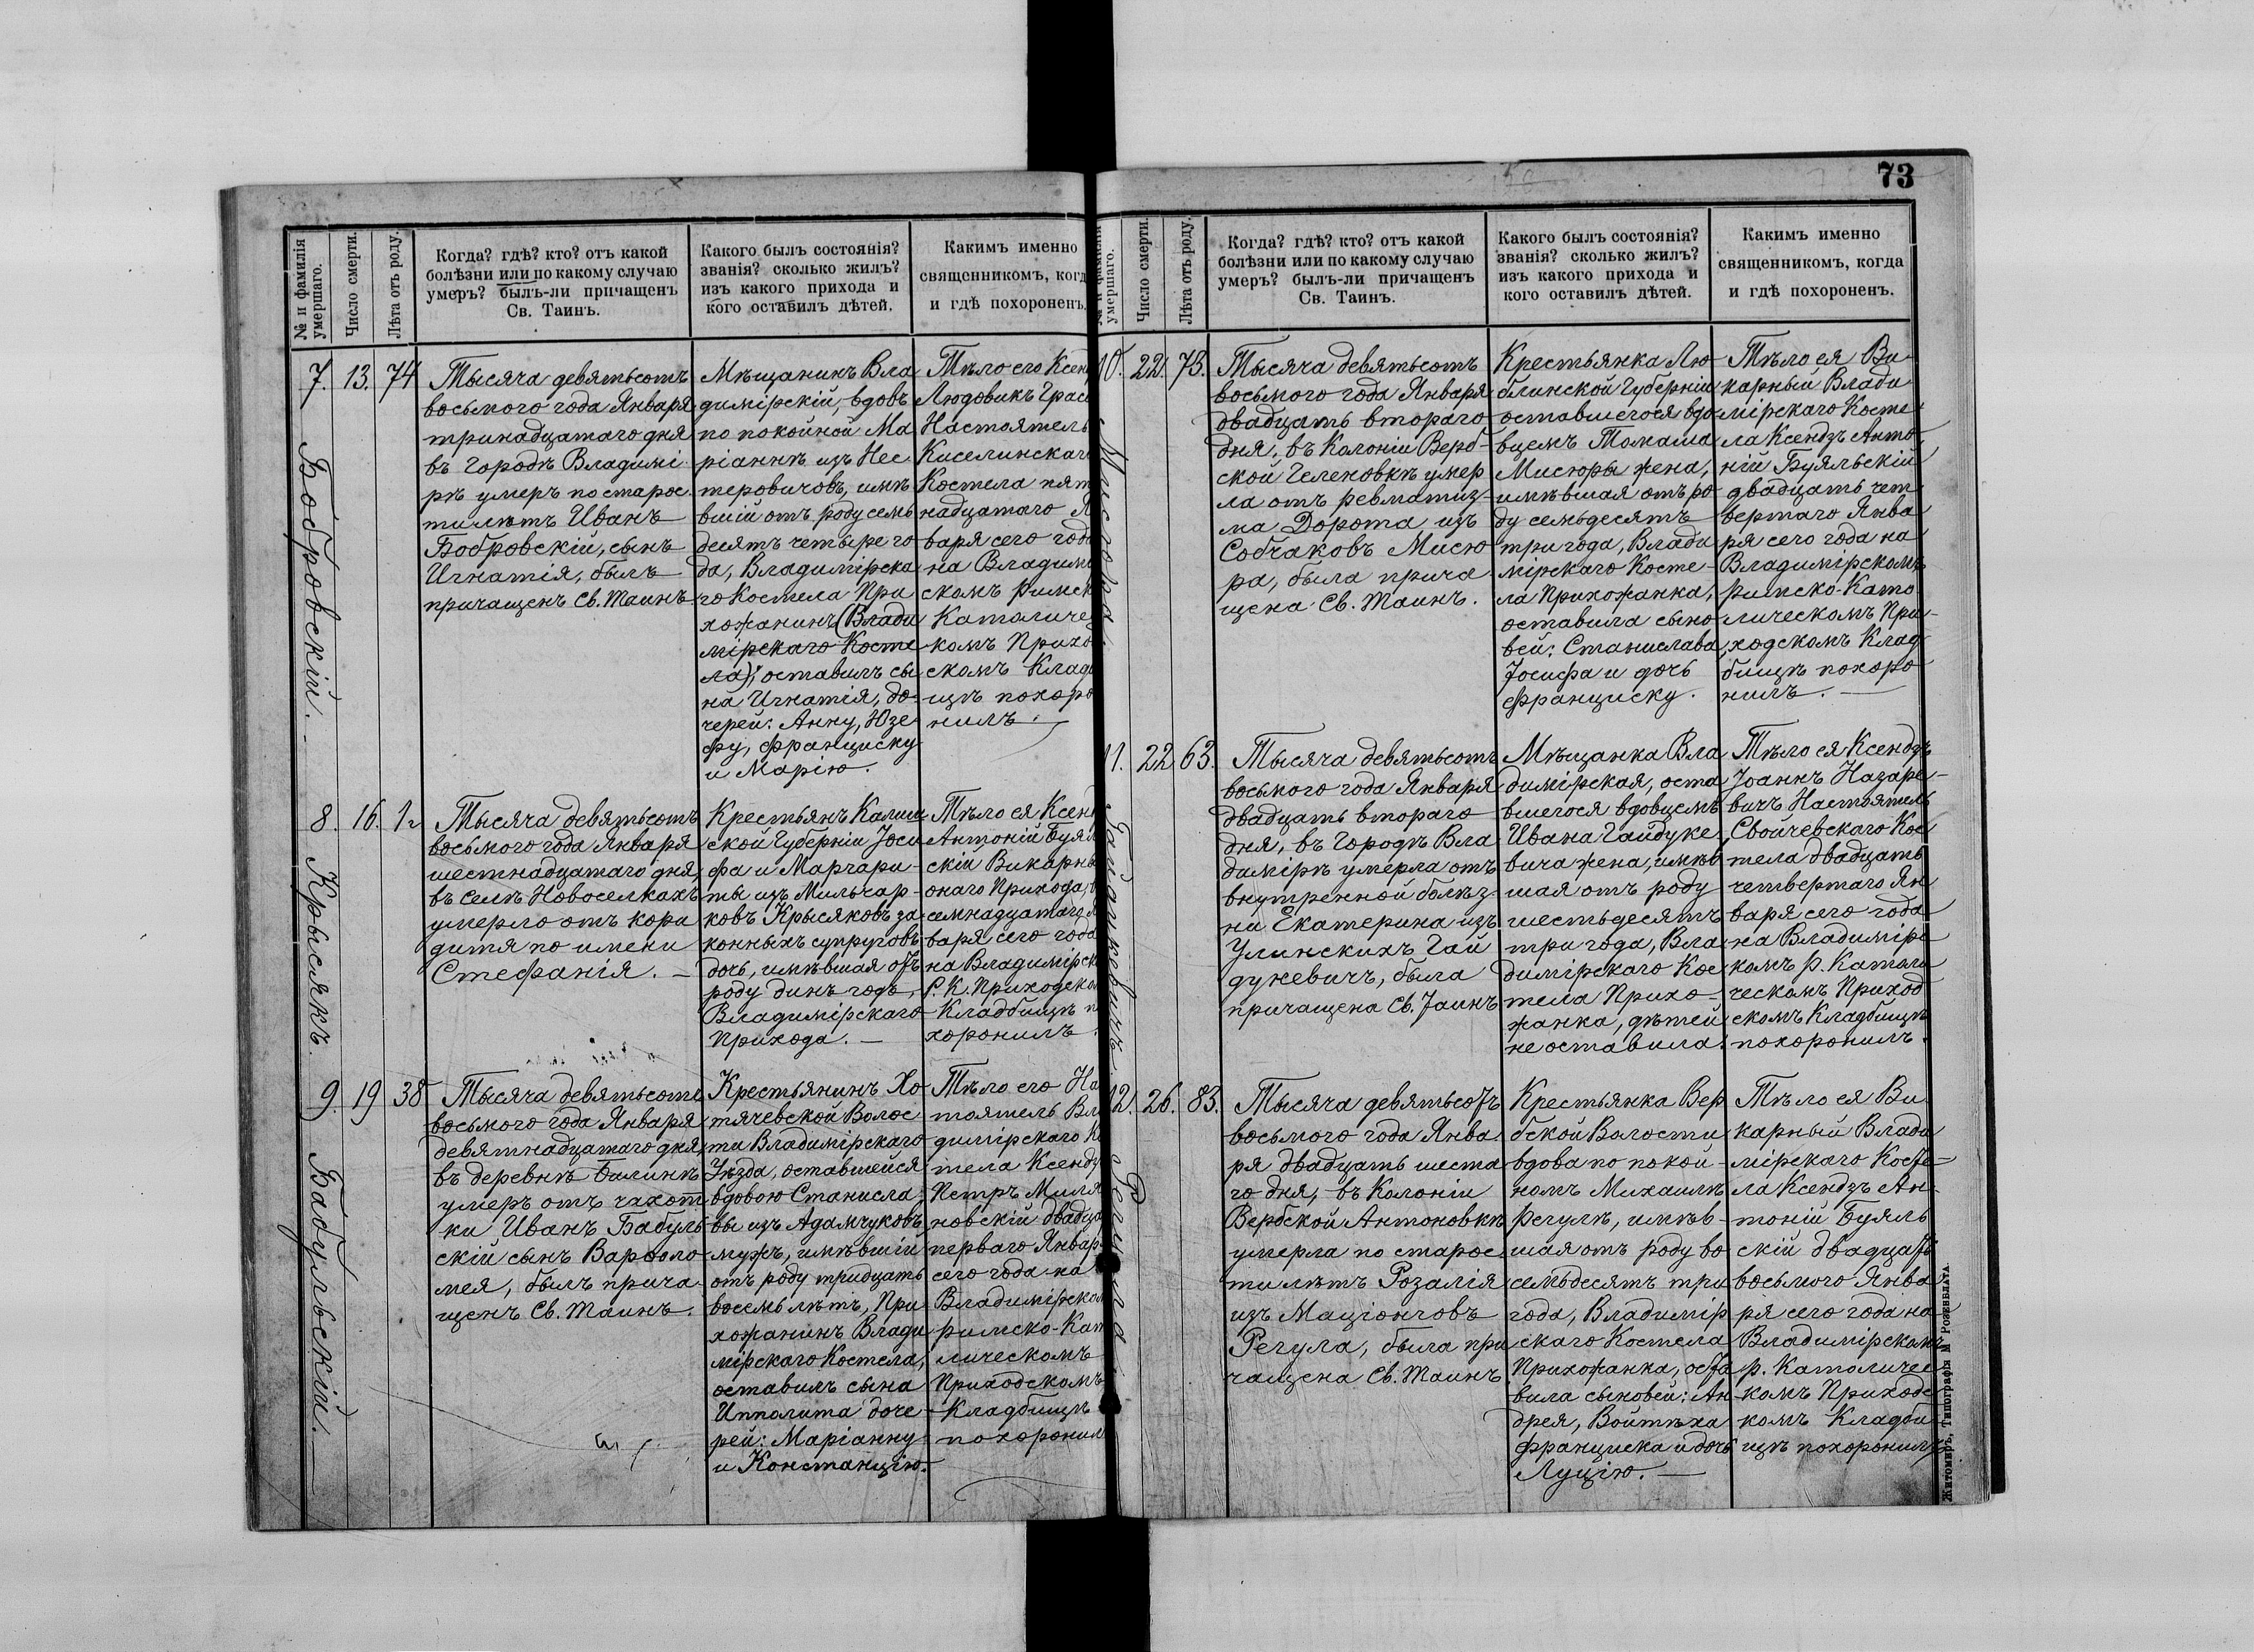 73
№ и фамилія
умершаго.
Число смерти.
Лѣта отъ роду.
Когда? гдѣ? кто? отъ какой
болѣзни или по какому случаю
умеръ? былъ-ли причащенъ
Св. Таинъ.
Какого былъ состоянія?
званія? сколько жилъ?
изъ какого прихода и
кого оставилъ дѣтей.
Какимъ именно
священникомъ, когд
и гдѣ похороненъ.
7.
Бобровскій.
13.
74
Тысяча девятьсотъ
восьмого года Января
тринадцатаго дня
въ Городѣ Владимі
рѣ умеръ по старос
тилѣтъ Иванъ
Бобровскій, сынъ
Игнатія, былъ
причащенъ Св. Таинъ
Мѣщанинъ Вла
димірскій, вдовъ
по покойной Ма
ріаннѣ изъ Нес
теровичовъ, имѣ
вшій отъ роду семь
десятъ четыре го
да, Владимірска
го Костела При
хожанинъ (Влади
мірскаго Косте
ла); оставилъ сы
на Игнатія, до-
черей: Анну, Юзе
фу, Франциску
и Марію.
Тѣло его Ксен
Людовикъ Грас
Настоятель
Киселинскаг
Костела пят
надцатаго Я
варя сего года
на Владимі
скомъ Римск
Католичес
комъ Прихо
скомъ Клад
щѣ похоро
нилъ.
8.
Крысякъ.
16.
1 г
Тысяча девятьсотъ
восьмого года Января
шестнадцатаго дня,
въ Селѣ Новоселкахъ
умерло отъ кори
дитя по имени
Стефанія. —
Крестьянъ Калиш
ской Губерніи Іоси
фа и Маргари-
ты изъ Мильчар-
ковъ Крысяковъ за
конныхъ супруговъ
дочь, имѣвшая отъ
роду динъ годъ,
Владимірскаго
Прихода. —
Тѣло ея Ксенд
Антоній Буял
скій Викарны
онаго Прихода,
семнадцатаго Я
варя сего года
на Владимірск
Р. К. Приходско
Кладбищѣ п
хоронилъ.
9.
Бабульскій.
19
38
Тысяча девятьсотъ
восьмого года Января
девятнадцатаго дня,
въ деревнѣ Фалинѣ
умеръ отъ чахот
ки Иванъ Бабуль
скій сынъ Варфоло
мея, былъ прича
щенъ Св. Таинъ.
Крестьянинъ Хо
тячевской Волос
ти Владимірскаго
Уѣзда, оставшейся
вдовою Станисла
вы изъ Адамчуковъ
мужъ, имѣвшій
отъ роду тридцать
восемь лѣтъ, При
хожанинъ Влади
мірскаго Костела,
оставилъ сына
Ипполита доче
рей: Маріанну
и Констанцію.
Тѣло его На
тоятель Вла
димірскаго К
тела Ксендз
Петръ Миля
новскій двадца
перваго Январ
сего года на
Владимірско
Римско-Кат
лическомъ
Приходскомъ
Кладбищѣ
похоронил
умершаго.
Число смерти.
Лѣта отъ роду.
Когда? гдѣ? кто? отъ какой
болѣзни или по какому случаю
умеръ? былъ-ли причащенъ
Св. Таинъ.
Какого былъ состоянія?
званія? сколько жилъ?
изъ какого прихода и
кого оставилъ дѣтей.
Какимъ именно
священникомъ, когда
и гдѣ похороненъ.
10.
Мисюра.
22.
73.
Тысяча девятьсотъ
восьмого года Января
двадцать второго
дня, въ Колоніи Верб-
ской Геленовкѣ умер
ла отъ ревматиз-
ма Дорота изъ
Собчаковъ Мисю
ра, была прича
щена Св. Таинъ.
Крестьянка Лю
блинской Губерніи
оставшегося вдо
вцемъ Томаша
Мисюры жена,
имѣвшая отъ ро
ду семьдесятъ
три года, Влади
мірскаго Косте-
ла Прихожанка,
оставила сыно
вей: Станислава,
Іосифа и дочь
Франциску.
Тѣло ея Ви
карный Влади
мірскаго Косте
ла Ксендзъ Анто
ній Буяльскій
двадцать чет
вертаго Янва
ря сего года на
Владимірскомъ
Римско-Като
лическомъ При-
ходскомъ Клад
бищѣ похоро
нилъ. —
11.
Гайдукевичъ
22
63.
Тысяча девятьсотъ
восьмого года Января
двадцать второго
дня, въ Городѣ Вла
димірѣ умерла отъ
внутренной болѣз-
ни Екатерина изъ
Улинскихъ Гай
дукевичъ, была
причащена Св. Таинъ
Мѣщанка Вла
димірская, оста
вшегося вдовцемъ
Ивана Гайдуке
вича жена, имѣв
шая отъ роду
шестьдесятъ
три года, Вла
димірскаго Кос
тела Прихо-
жанка, дѣтей
не оставила.
Тѣло ея Ксендзъ
Іоаннъ Назаре-
вичъ Настоятель
Свойчевскаго Кос
тела двадцать
четвертаго Ян
варя сего года
на Владимірс
комъ Р. Катали
ческомъ Приход
скомъ Кладбищѣ
похоронилъ.
12.
Регула
26.
83.
Тысяча девятьсотъ
восьмого года Янва
ря двадцать шеста
го дня, въ Колоніи
Вербской Антоновкѣ
умерла по старос
тилѣтъ Розалія
изъ Маціонговъ
Регула, была при
чащена Св. Таинъ.
Крестьянка Вер
бской Волости
вдова по покой-
номъ Михаилѣ
Регулѣ, имѣв-
шая отъ роду во
семьдесятъ три
года, Владимір
скаго Костела
Прихожанка, оста
вила сыновей: Ан
дрея, Войтѣха
Франциска и дочь
Луцію. —
Тѣло ея Ви
карный Влади
мірскаго Косте-
ла Ксендзъ Ан-
тоній Буяль
скій двадцать
восьмого Янва
ря сего года на
Владимірскомъ
Р. Католичес
комъ Приходс
комъ Кладби
щѣ похоронилъ
Житомиръ, Типографія М Розенблата